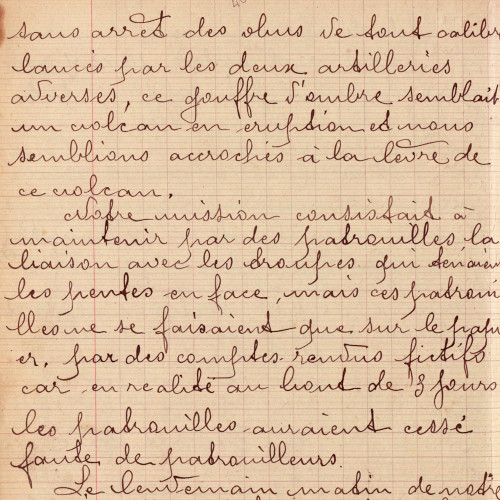 sans arrêt des obus de tout calibr
lancés par les deux artilleries
adverses, ce gouffre d'ombre semblait
un volcan en eruption et nous
semblions accrochés à la lèvre de
ce volcan.
Notre mission consistait à
maintenir par des patrouilles la
liaison avec les troupes qui tenaien
les pentes en face, mais ces patroui
lles ne se faisaient que sur le papi
er, par des comptes-rendus fictifs
car en realité au bout de 3 jours
les patrouilles auraient cessé
faute de patrouilleurs.
Le lendemain matin de notr